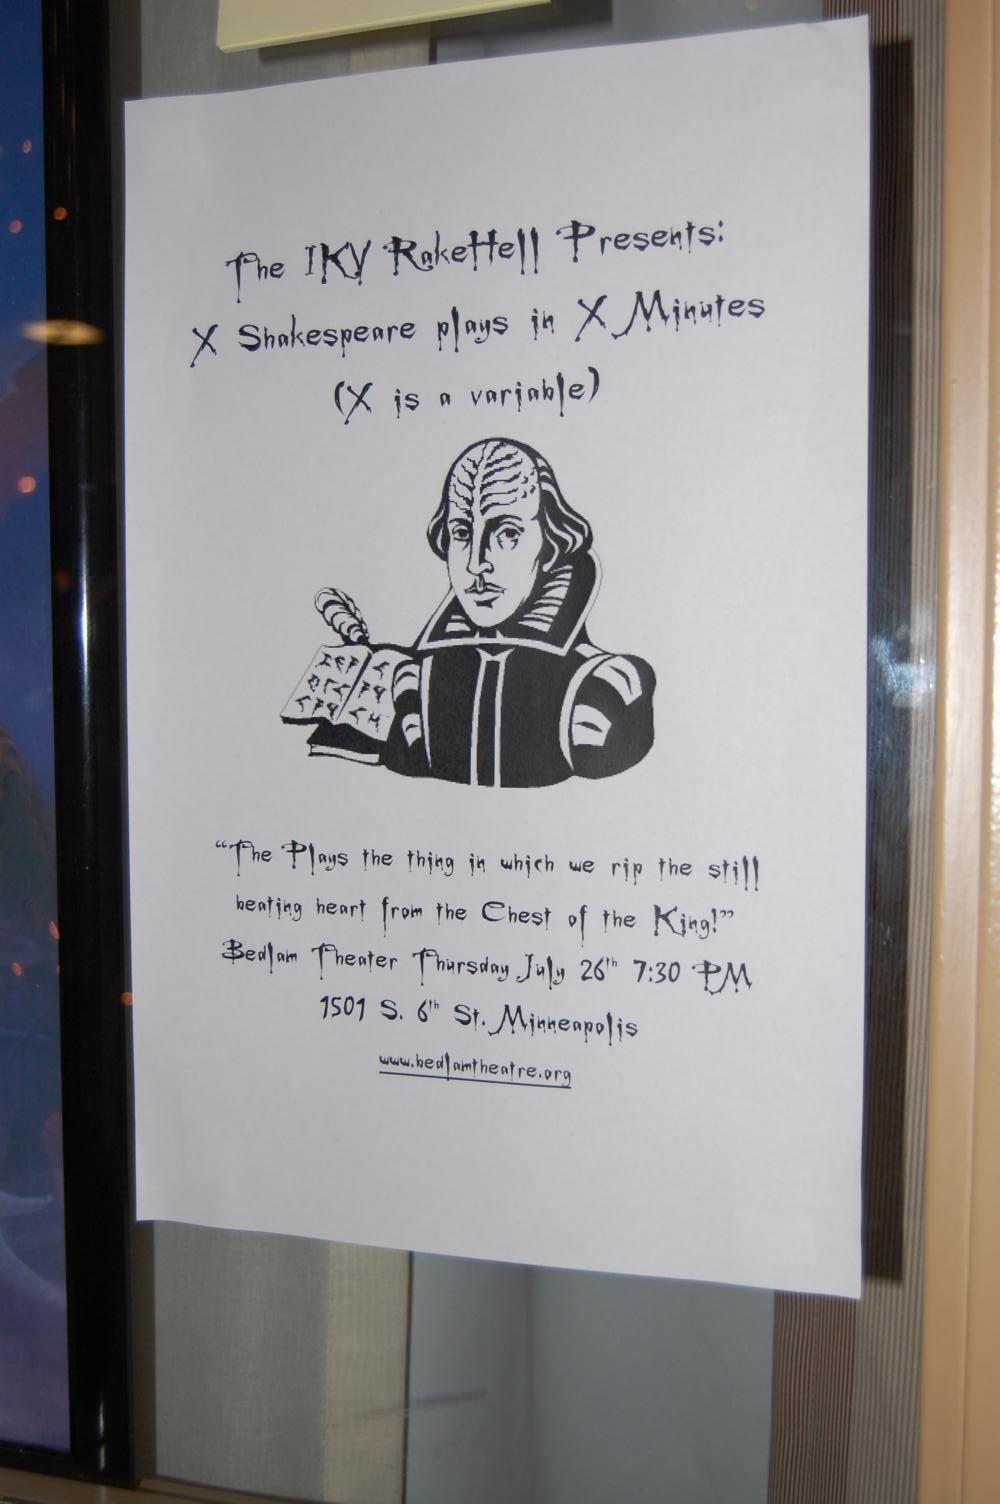 The IKV RakeHell Presents:
X Shakespeare plays in X Minutes
(X is a variable)
"The Plays the thing in which we rip the still
beating heart from the Chest of the King!"
Bedlam Theater Thursday July 26th 7:30 PM
1501 S. 6th St. Minneapolis
www.bedlamtheatre.org